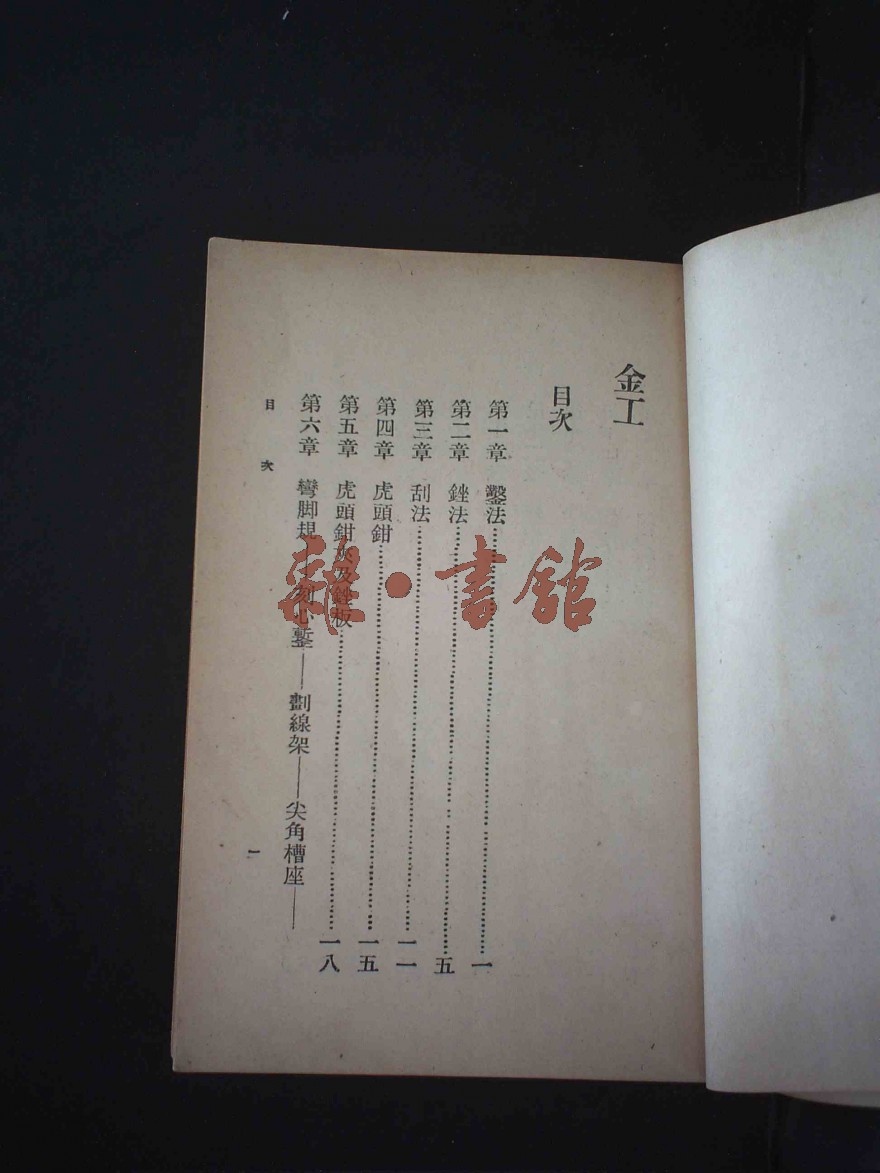 金工
目次
第一章 鑿法 一
第二章 銼法 五
第三章 刮法 一一
第四章 虎頭鉗 一五
第五章 虎頭鉗灰及銼板 一八
第六章 彎脚規——刻心鏨——劃線架——尖角槽座——
目次
一
雜·書舘